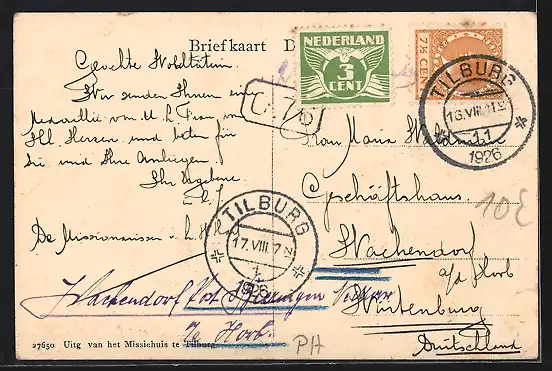 Briefkaart
NEDERLAND
3
CENT
7½ CENT
TILBURG
16.VIII.11
1926
Geehrte Wohltäterin.
Wir senden Ihnen eine
Medaillie von U. L. Frau vom
Hl. Herzen und beten für
Sie und Ihre Anliegen.
Ihr Ergebene
Frau Maria
Geschäftshaus.
10E
TILBURG
17.VIII
1926
De Missionarissen v. L. H.
Wachendorf
a/d Horb
Wachendorf Post Bieringen
a/ Horb.
Würtenburg
Deutschland
27650 Uitg van het Missiehuis te Tilburg
PH